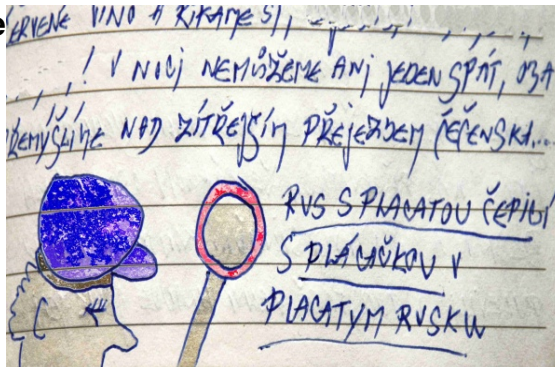 ERVENÉ VÍNO A ŘÍKÁME SI,
! V NOCI NEMŮŽEME ANI JEDEN SPÁT, OBA
ŘEMÝŠLÍME NAD ZÍTŘEJŠÍM PŘEJEZDEM ČEČENSKA...
RUS S PLACATOU ČEPICÍ
S PLÁCAČKOU V
PLACATÝM RUSKU